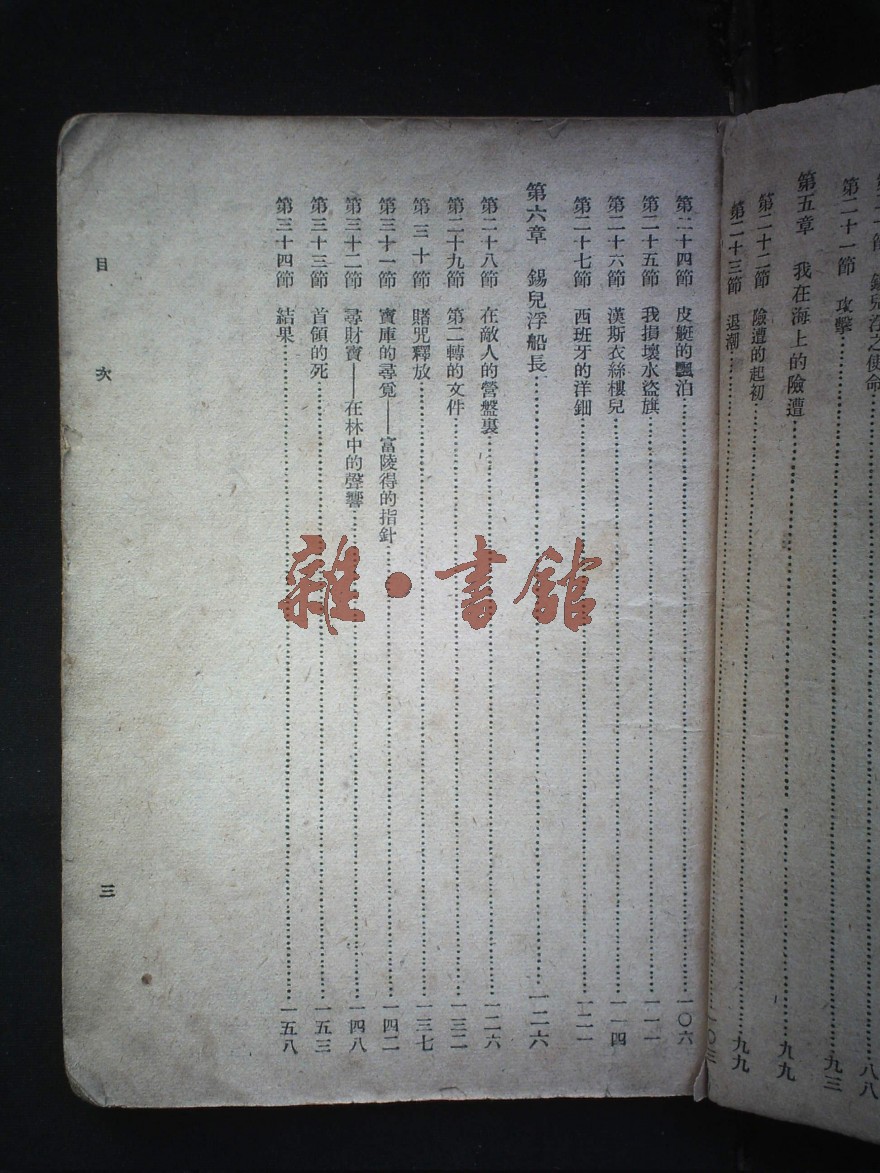 錫兒浮之使命……八八
第二十一節 攻擊……九三
第五章 我在海上的險遭……九九
第二十二節 險遭的起初……九九
第二十三節 退潮……一〇三
第二十四節 皮艇的飄泊……一〇六
第二十五節 我損壞水盜旗……一一一
第二十六節 漢斯衣絲樓兒……一一四
第二十七節 西班牙的洋鈿……一二一
第六章 錫兒浮船長……一二六
第二十八節 在敵人的營盤裏……一二六
第二十九節 第二轉的文件……一三二
第三十節 賭咒釋放……一三七
第三十一節 寶庫的尋覓——富陵得的指針……一四二
第三十二節 尋財寶——在林中的聲響……一四八
第三十三節 首領的死……一五三
第三十四節 結果……一五八
目次 三
雜·書館